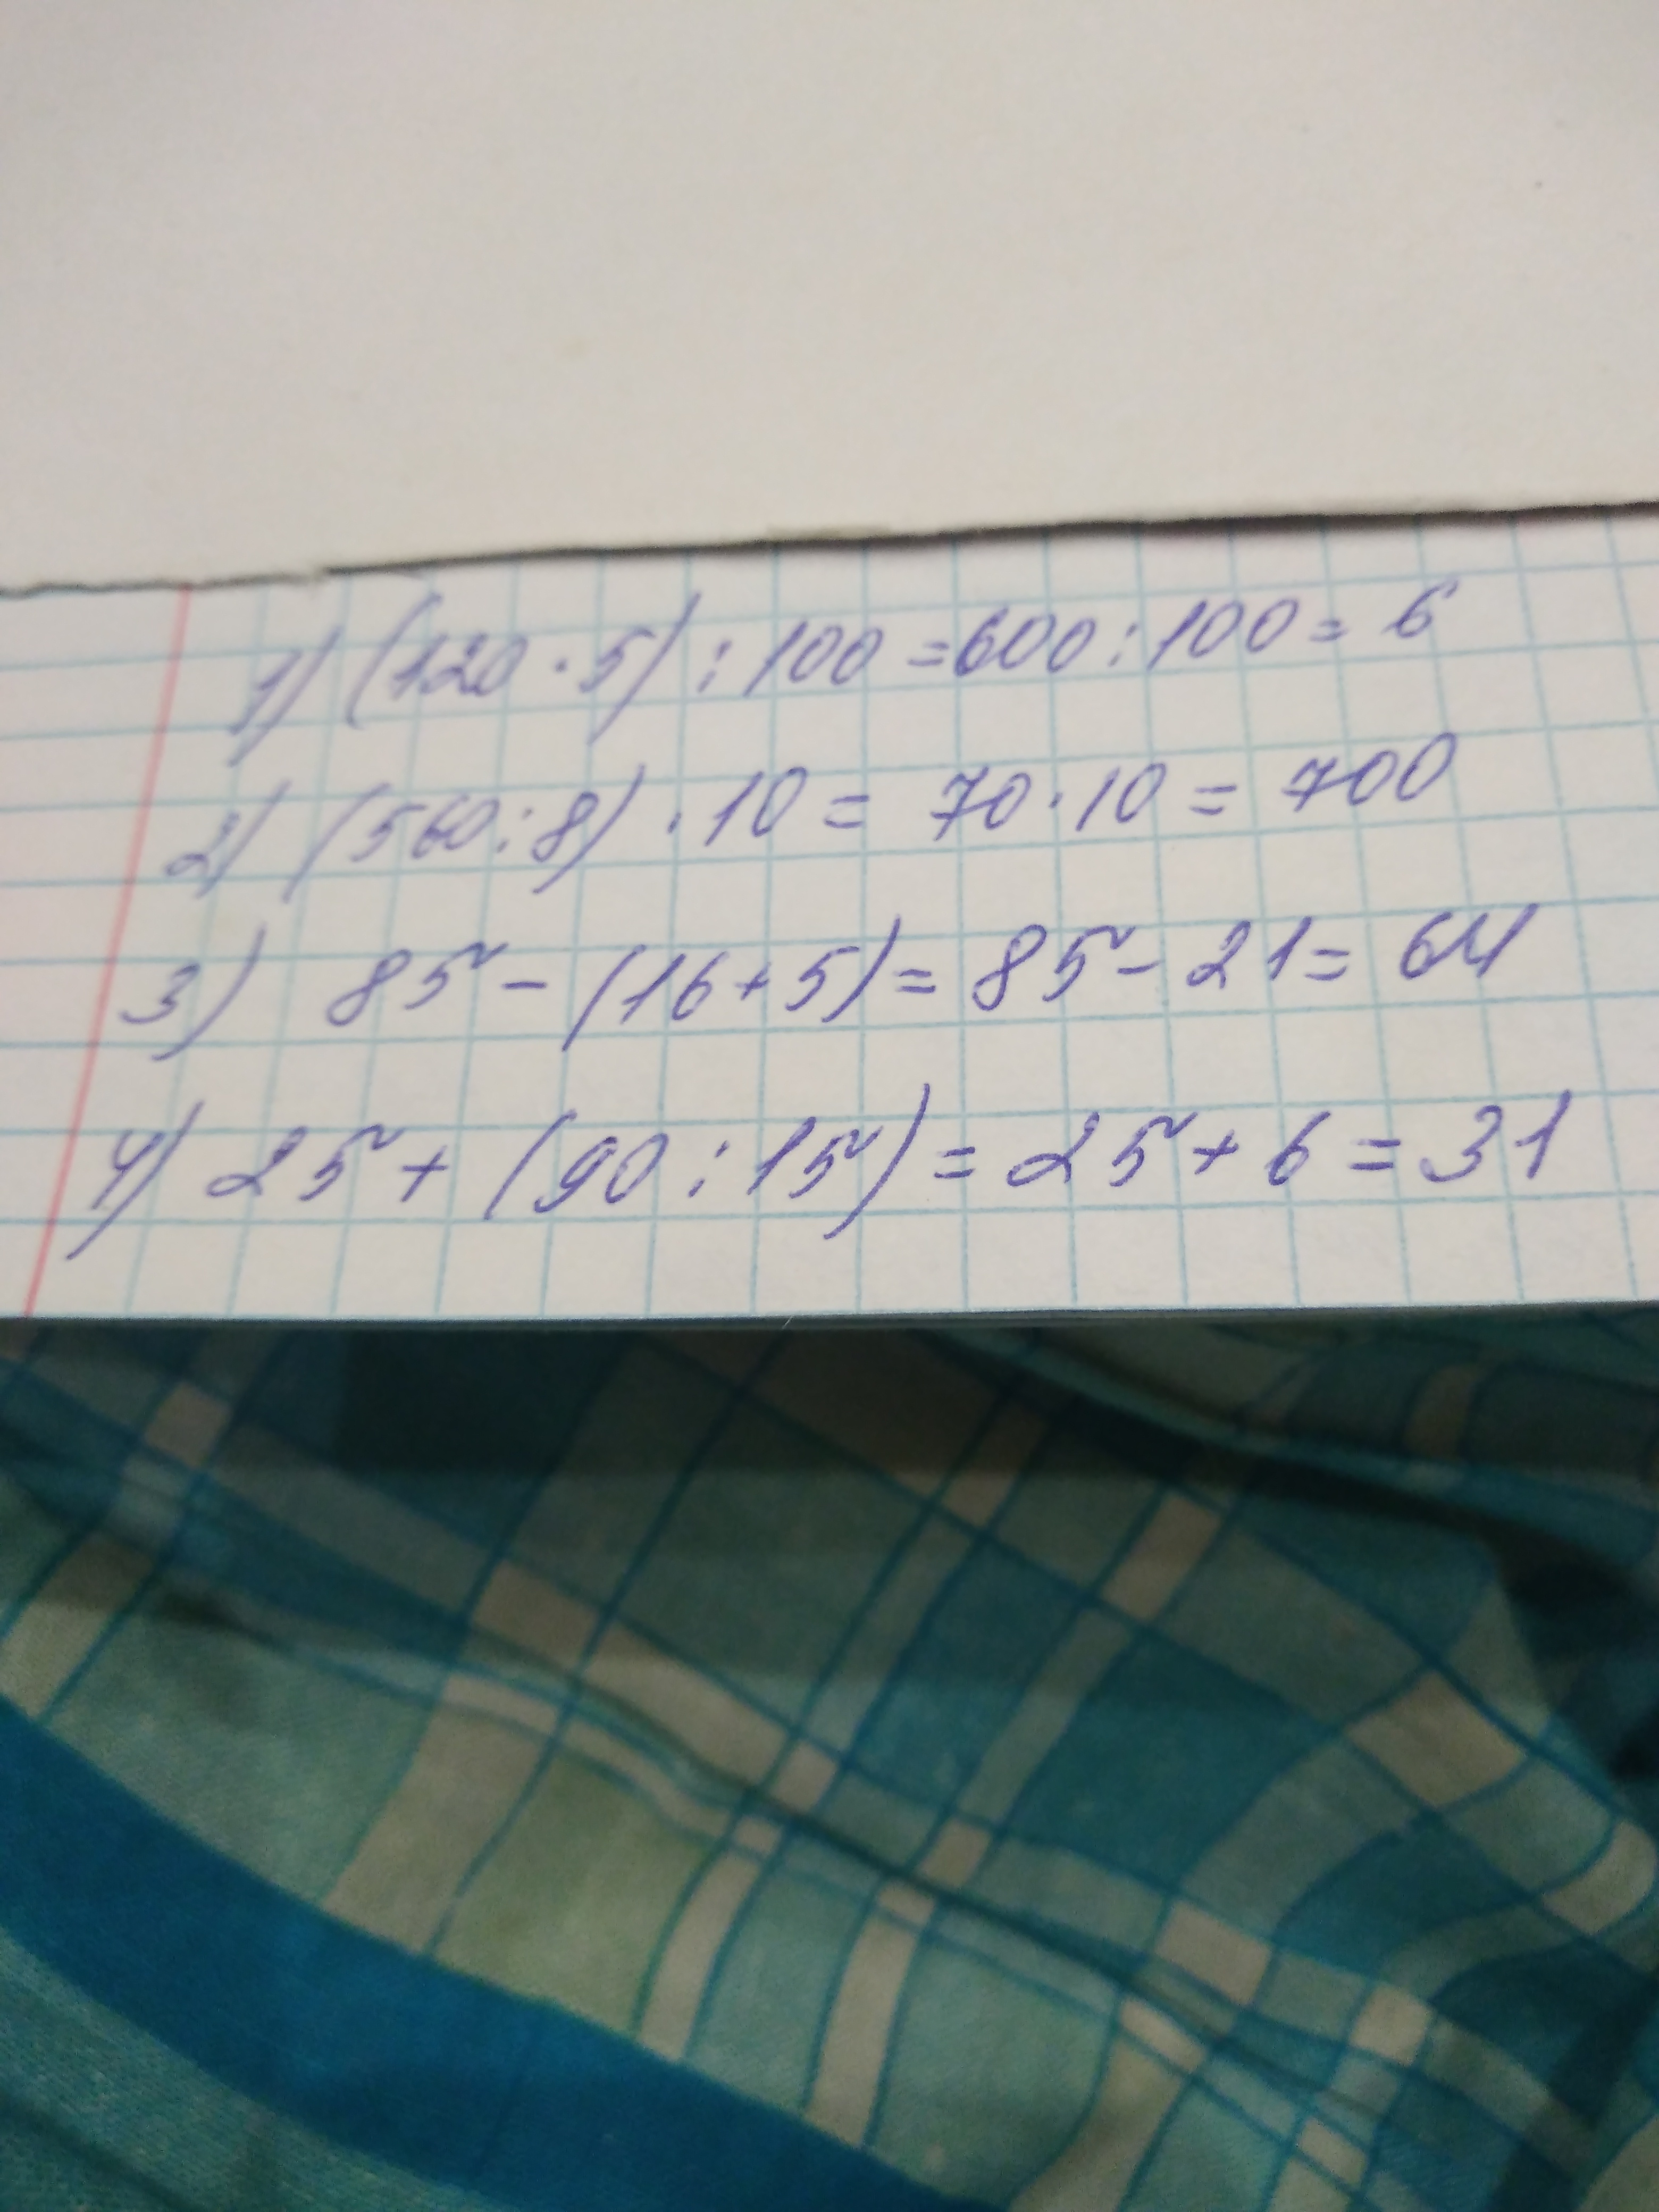 1) (120 · 5) : 100 = 600 : 100 = 6
2) (560 : 8) · 10 = 70 · 10 = 700
3) 85 - (16 + 5) = 85 - 21 = 64
4) 25 + (90 : 15) = 25 + 6 = 31